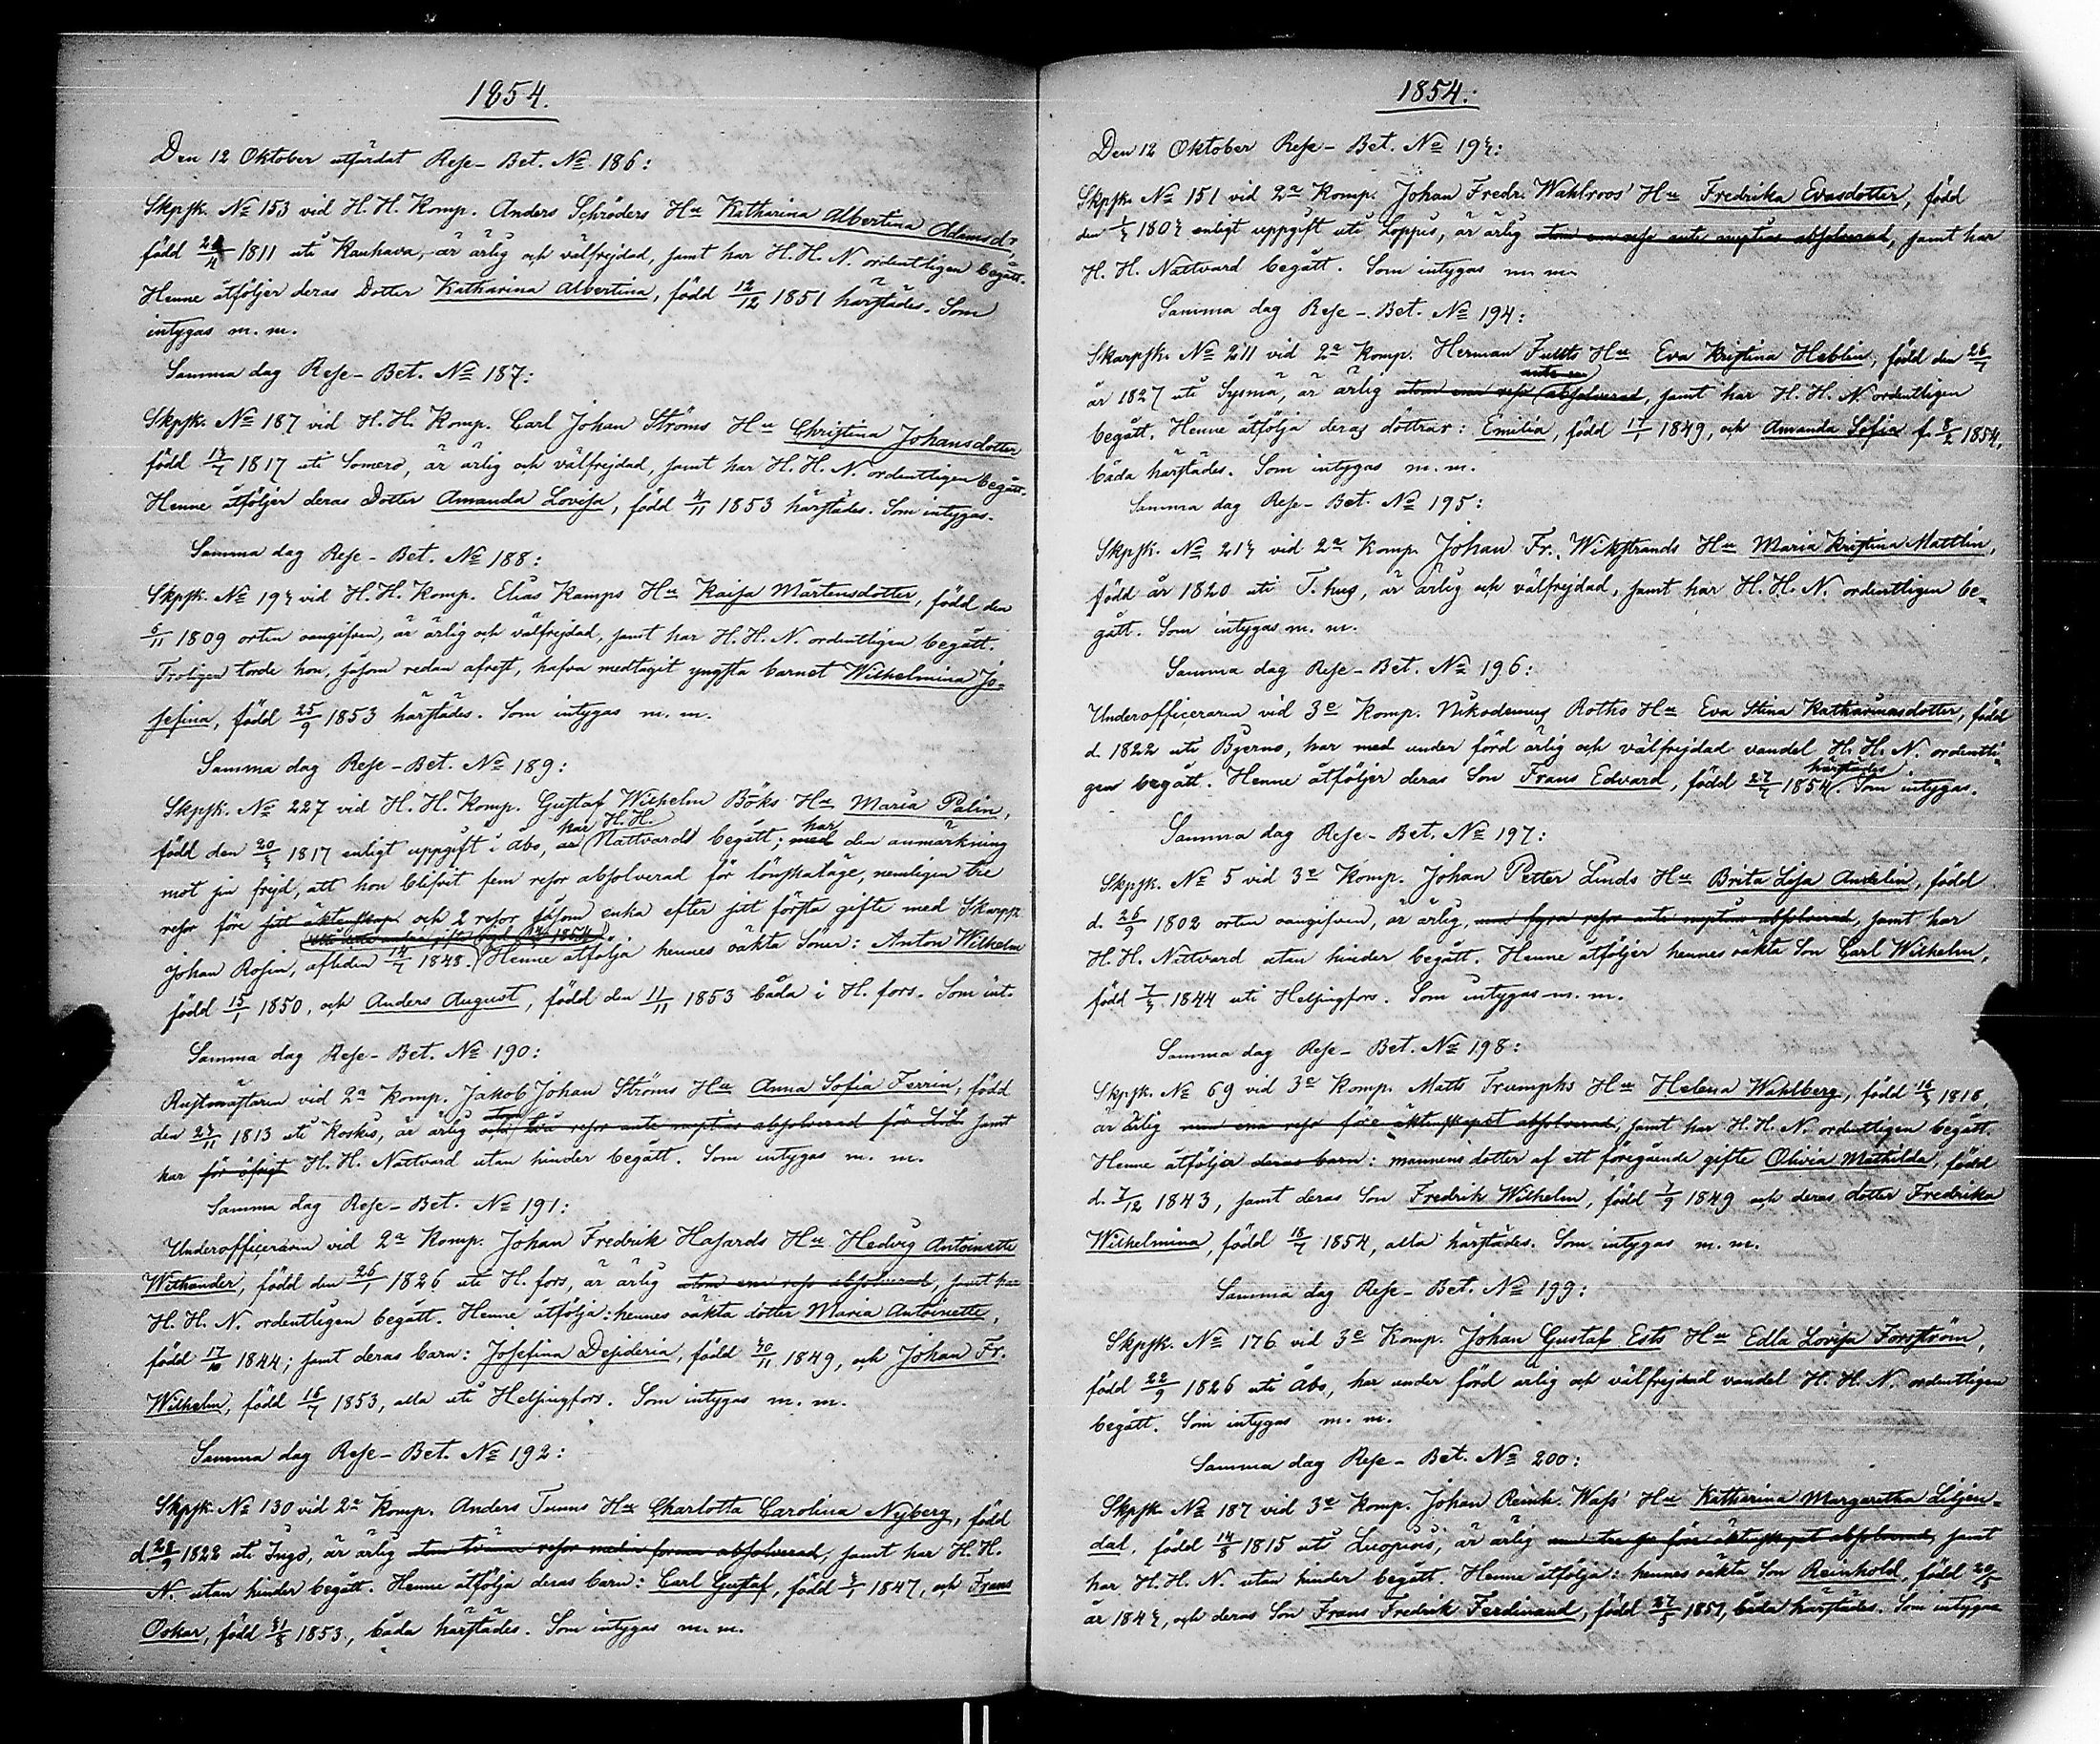 1854.
Den 12 Oktober utfärdat Rese-Bet. No 186:
Skpsk. No 153 vid H. H. Komp. Anders Schröders Hu Katharina Albertina Adamsdr,
född 1811 uti Kauhava, är ärlig och välfrejdad, samt har H. H. N. ordentligen begått.
Henne åtföljer deras Dotter Katharina Albertina, född 12/12 1851 härstädes. Som
intygas m. m.
Samma dag Rese-Bet. No 187:
Skpsk. No 187 vid H. H. Komp. Carl Johan Ströms Hu Christina Johansdotter
född 13/7 1817 uti Somero, är ärlig och välfrejdad, samt har H. H. N. ordentligen begått.
Henne åtföljer deras Dotter Amanda Lovisa, född 4/11 1853 härstädes. Som intygas.
Samma dag Rese-Bet. No 188:
Skpsk. No 193 vid H. H. Komp. Elias Kamps Hu Kaisa Mårtensdotter, född den
6/11 1809 orten oangifven, är ärlig och välfrejdad, samt har H. H. N. ordentligen begått.
Troligen torde hon, såsom redan afrest, hafva medtagit yngsta barnet Wilhelmina Jo=
sefina, född 25/9 1853 härstädes. Som intygas m. m.
Samma dag Rese-Bet. No 189:
Skpsk. No 227 vid H. H. Komp. Gustaf Wilhelm Böks Hu Maria Palin,
född den 20/3 1817 enligt uppgift i Åbo, är har H. H. Nattvard begått; med har den anmärkning
mot sin frejd, att hon blifvit fem resor absolverad för lönskaläge, nemligen tre
resor före sitt äktenskap och 2 resor såsom enka efter sitt första gifte med Skarpsk
Johan Rosin, afliden 14/7 1848. Henne åtfölja hennes oäkta Söner: Anton Wilhelm
född 15/1 1850, och Anders August, född den 11/11 1853 båda i H. fors. Som int.
Samma dag Rese-Bet. No 190:
Rustmästaren vid 2a Komp. Jakob Johan Ströms Hu Anna Sofia Ferrin, född
den 23/11 1813 uti Koskis, är ärlig och två resor ante nuptias absolverad för samt
har för öfrigt H. H. Nattvard utan hinder begått. Som intygas m. m.
Samma dag Rese-Bet. No 191:
Underofficeraren vid 2a Komp. Johan Fredrik Hasards Hu Hedvig Antoinette
Withander, född den 26/1 1826 uti H. fors, är ärlig utom en resa absolverad, samt har
H. H. N. ordentligen begått. Henne åtfölja: hennes oäkta dotter Maria Antoinette,
född 17/10 1844; samt deras barn: Josefina Desideria, född 30/11 1849, och Johan Fr.
Wilhelm, född 16/7 1853, alla uti Helsingfors. Som intygas m. m.
Samma dag Rese-Bet. No 192:
Skpsk. No 130 vid 2a Komp. Anders Tumms Hu Charlotta Carolina Nyberg, född
d. 1822 uti Ingo, är ärlig utom tvänne resor absolverad, samt har H. H.
N. utan hinder begått. Henne åtfölja deras barn: Carl Gustaf, född 1847, och Frans
Oskar, född 31/8 1853, båda härstädes. Som intygas m. m.
1854.
Den 12 Oktober Rese-Bet. No 193:
Skpsk. No 151 vid 2a Komp. Johan Fredr. Wahlroos' Hu Fredrika Evasdotter, född
den 1803 enligt uppgift uti Loppis, är ärlig utom en resa ante nuptias absolverad, samt har
H. H. Nattvard begått. Som intygas m. m.
Samma dag Rese-Bet. No 194:
Skarpsk. No 211 vid 2a Komp. Herman Hu Eva Kristina Heblin, född den 26/7
år 1827 uti Sysmä, är ärlig utom en resa absolverad, samt har H. H. N. ordentligen
begått. Henne åtfölja deras döttrar: Emilia, född 17/1 1849, och Amanda Sofia f. 8/2 1854,
båda härstädes. Som intygas m. m.
Samma dag Rese-Bet. No 195:
Skpsk. No 213 vid 2a Komp. Johan Fr. Wikstrands Hu Maria Kristina Mattlin,
född år 1820 uti T. hus, är ärlig och välfrejdad, samt har H. H. N. ordentligen be=
gått. Som intygas m. m.
Samma dag Rese-Bet. No 196:
Underofficeraren vid 3e Komp. Nikodemus Roths Hu Eva Stina Katharinasdotter, född
d. 1822 uti Bjerno, har med under förd ärlig och välfrejdad vandel H. H. N. ordentli=
gen begått. Henne åtföljer deras Son Frans Edvard, född 27/7 1854 härstädes. Som intygas.
Samma dag Rese-Bet. No 197:
Skpsk. No 5 vid 3e Komp. Johan Petter Linds Hu Brita Lisa Andelin, född
d. 26/9 1802 orten oangifven, är ärlig, men fyra resor ante nuptias absolverad, samt har
H. H. Nattvard utan hinder begått. Henne åtföljer hennes oäkta Son Carl Wilhelm,
född 7/3 1844 uti Helsingfors. Som intygas m. m.
Samma dag Rese-Bet. No 198:
Skpsk. No 69 vid 3e Komp. Matts Trumphs Hu Helena Wahlberg, född 16/3 1818,
är ärlig men en resa före äktenskapet absolverad, samt har H. H. N. ordentligen begått.
Henne åtfölja deras barn: mannens dotter af ett föregående gifte Olivia Mathilda, född
d. 7/12 1843, samt deras Son Fredrik Wilhelm, född 7/9 1849 och deras dotter Fredrika
Wilhelmina, född 18/7 1854, alla härstädes. Som intygas m. m.
Samma dag Rese-Bet. No 199:
Skpsk. No 176 vid 3e Komp. Johan Gustaf Ests Hu Edla Lovisa Forsström,
född 22/9 1826 uti Åbo, har under förd ärlig och välfrejdad vandel H. H. N. ordentligen
begått. Som intygas m. m.
Samma dag Rese-Bet. No 200:
Skpsk No 187 vid 3e Komp. Johan Reinh. Wass' Hu Katharina Margaretha Liljen=
dal, född 14/8 1815 uti Luopiois, är ärlig men tre före äktenskapet absolverad, samt
har H. H. N. utan hinder begått. Henne åtfölja: hennes oäkta Son Reinhold, född
år 1843, och deras Son Frans Fredrik Ferdinand, född 27/5 1851, båda härstädes. Som intygas